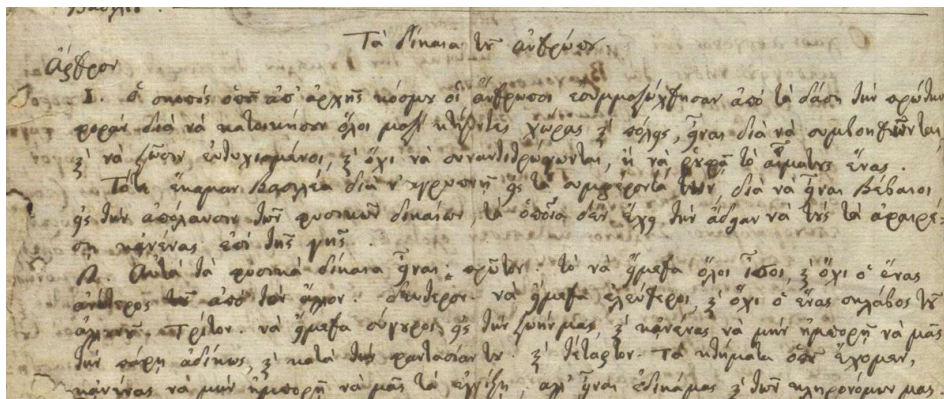 Τὰ δίκαια τοῦ ἀνθρώπου
ἄρθρον
1. ὁ σκοπός ὁποῦ ἀπ' ἀρχῆς κόσμου οἱ ἄνθρωποι ἐσυμμαζώχθησαν ἀπό τὰ δάση τὴν πρώτην
φοράν διὰ νὰ κατοικήσουν ὅλοι μαζί κτίζοντες χώρας καὶ πόλεις, εἶναι διὰ νὰ συμβοηθῶνται
καὶ νὰ ζῶσιν εὐτυχισμένοι, καὶ ὄχι νὰ συναντιτρώγωνται, ἢ νὰ ῥουφᾷ τὸ αἷμα τους ἕνας.
Τότε ἔκαμαν βασιλέα διὰ ν' ἀγρυπνῇ εἰς τὰ συμφέροντά των, διὰ νὰ εἶναι βέβαιοι
εἰς τὴν ἀπόλαυσιν τῶν φυσικῶν δικαίων, τὰ ὁποῖα δὲν ἔχει τὴν ἄδειαν νὰ τοὺς τὰ ἀφαιρέ-
σῃ κανένας ἐπί τῆς γῆς.
2. Αὐτὰ τὰ φυσικὰ δίκαια εἶναι· πρῶτον· τὸ νὰ εἴμεθα ὅλοι ἴσοι, καὶ ὄχι ὁ ἕνας
ἀνώτερος ἀπὸ τὸν ἄλλον. δεύτερον· νὰ εἴμεθα ἐλεύθεροι, καὶ ὄχι ὁ ἕνας σκλάβος τοῦ
ἀλλουνοῦ. Τρίτον· νὰ εἴμεθα σίγουροι εἰς τὴν ζωήν μας, καὶ κανένας νὰ μὴν ἠμπορῇ νὰ μᾶς
τὴν πάρῃ ἀδίκως, καὶ κατὰ τὴν φαντασίαν του. καὶ τέταρτον· Τὰ κτήματα ὁποῦ ἔχομεν,
κανένας νὰ μὴν ἠμπορῇ νὰ μᾶς τὰ ἐγγίξῃ, ἀλλ' εἶναι ἐδικά μας καὶ τῶν κληρονόμων μας.